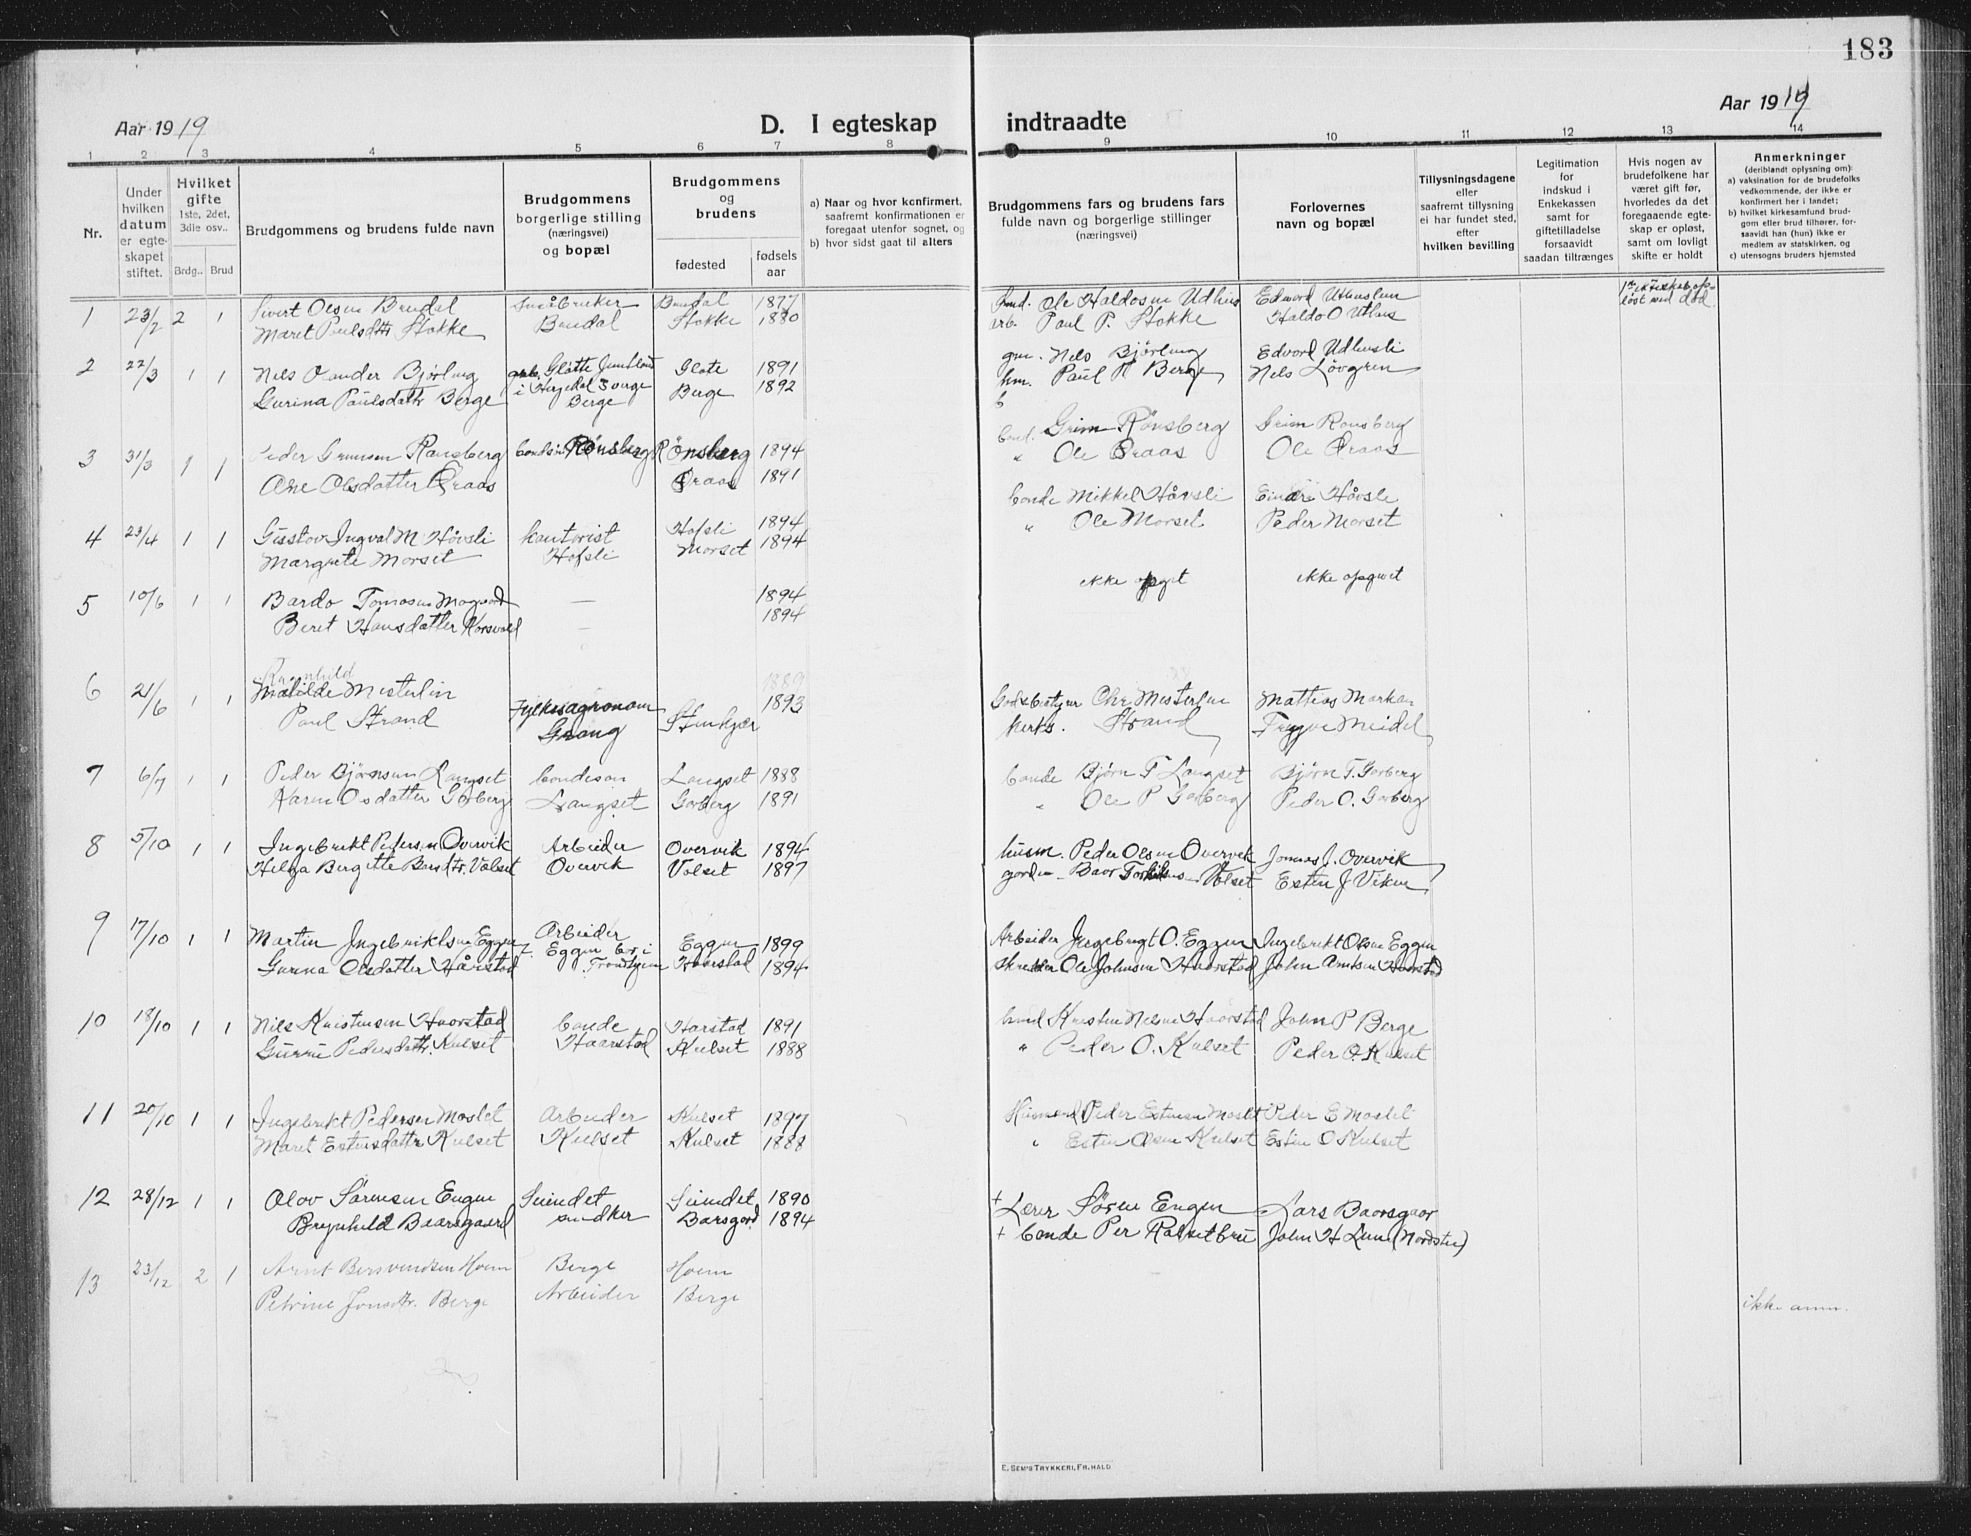 183
Aar 1919
D. I egteskap indtraadte
Aar 1919
1 2 3 4 5 6 7 8 9 10 11 12 13 14
Nr.
Under hvilken datum er egteskapet stiftet.
Hvilket gifte
1ste, 2det, 3die osv..
Brdg.. Brud
Brudgommens og brudens fulde navn
Brudgommens borgerlige stilling (næringsvei) og bopæl
Brudgommens og brudens
fødested
fødsels aar
a) Naar og hvor konfirmert, saafremt konfirmationen er foregaat utenfor sognet, og
b) hvor sidst gaat til alters
Brudgommens fars og brudens fars fulde navn og borgerlige stillinger (næringsvei)
Forlovernes navn og bopæl
Tillysningsdagene eller saafremt tillysning ei har fundet sted, efter hvilken bevilling
Legitimation for indskud i Enkekassen samt for giftetilladelse forsaavidt saadan tiltrænges
Hvis nogen av brudefolkene har været gift før, hvorledes da det foregaaende egteskap er opløst, samt om lovligt skifte er holdt
Anmerkninger
(deriblandt oplysning om):
a) vaksination for de brudefolks vedkommende, der ikke er konfirmert her i landet;
b) hvilket kirkesamfund brudgom eller brud tilhører, forsaavidt han (hun) ikke er medlem av statskirken, og
c) utensogns bruders hjemsted
1 23/2 2 1 Sivert Olsen Bendal Småbruker Bendal 1877 Ole Haldosen Udhus
Maret Paulsdtr Stokke Bendal Stokke 1880 arb. Paul P. Stokke Haldo O Uthus
2 22/3 1 1 Nils Bjørling Gløtte 1891 gm. Nils Bjørling Edvard Udhusli
Gurina Paulsdattr Berge Berge Berge 1892 hm. Paul Berge Nels Løvgren
3 31/3 1 1 Peder Grimsen Rønsberg Rønsberg Rønsberg 1894 Grim Rønsberg Grim Ronsberg
Ane Olsdatter Øraas Øraas 1891 " Ole Øraas Ole Øraas
4 23/4 1 1 Gustov Ingval M. Høvsli kontorist Hofsli 1894 bonde Mikkel Håvsli
Margrete Morset Hofsli Morset 1894 " Ole Morset Peder Morset
5 10/6 1 1 Bardo Tomasen — 1894 ikke opgit ikke opgivet
Beret Hansdatter Korsvold — 1894
6 21/6 1 1 Ragnhild
Matilde Mesterlin 1889
Fylkesagronom 1893 Chr Mesterlin Mattias
Paul Strand Grong Stenkjær Strand Trygve Meidel
7 6/7 1 1 Peder Bjørnsen Langset bondesøn Langset 1888 bonde Bjørn T Langset Bjørn T. Gorberg
Karen Osdatter Gorberg Langset Gorberg 1891 " Ole P Gorberg Peder O. Gorberg
8 5/10 1 1 Ingebrikt Pedersen Overvik Arbeider Overvik 1894 husm. Peder Olsen Overvik Jonas J. Overvik
Helga Bergitte Bardtr. Volset Overvik Volset 1897 Volset Esten J Viken
9 17/10 1 1 Martin Ingebriktsen Eggen Arbeider Eggen 1899 Arbeider Ingebrigt O. Eggen Ingebrikt Olsen Eggen
Eggen bor i
Gurina Olsdatter Hårstad Trondhjem Haarstad 1894 skredder Ole Johnsen Haarstad John Arntsen Haarstad
10 18/10 1 1 Nils Kristensen Haarstad bonde Harstad 1891 Kristen Nilsen Haarstad John P Berge
Peder­sdattr. Kulset Haarstad Kulset 1888 " Peder O. Kulset Peder O. Kulset
11 20/10 1 1 Ingebrikt Pedersen Moslet Arbeider Kulset 1897 Husmand Peder Estensen Moslet Peder E Moslet
Maret Estensdattr Kulset Kulset Kulset 1888 " Esten Olsen Kulset Esten O Kulset
12 28/12 1 1 Olov Sørensen Engen Seimdet Seimdet 1890 + Lærer Søren Engen Lars Baarsgaar
Brynhild Baarsgaard snedker Barsgard 1894 + bonde Per John H (Nordstu)
13 23/12 2 1 Arnt Bersvendsen Hoem Berge Hoem
Petrine Jonsdtr. Berge Arbeider Berge ikke anm.
E. Sem's Trykkeri, Fr.hald